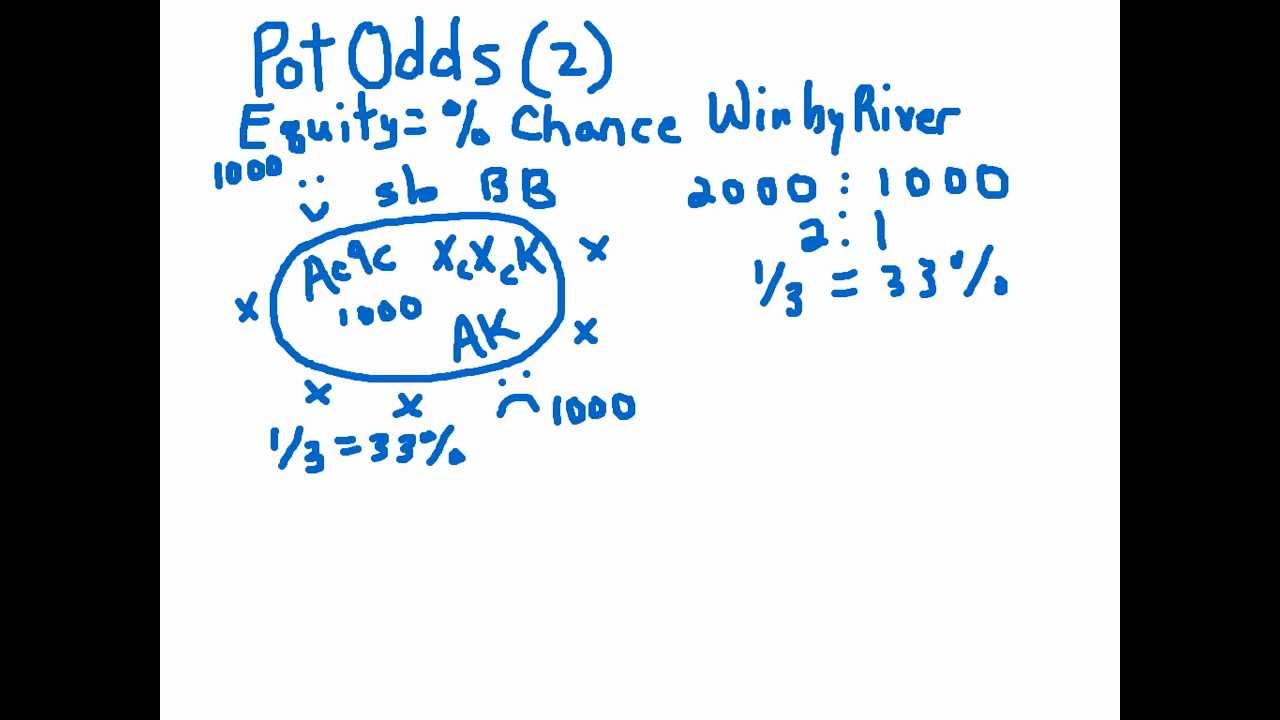 Pot Odds (2)
Equity = % Chance Win by River
1000
sb BB
2000 : 1000
2 : 1
1/3 = 33%
Ac9c XcXcK X
X 1000
AK X
X X 1000
1/3 = 33%